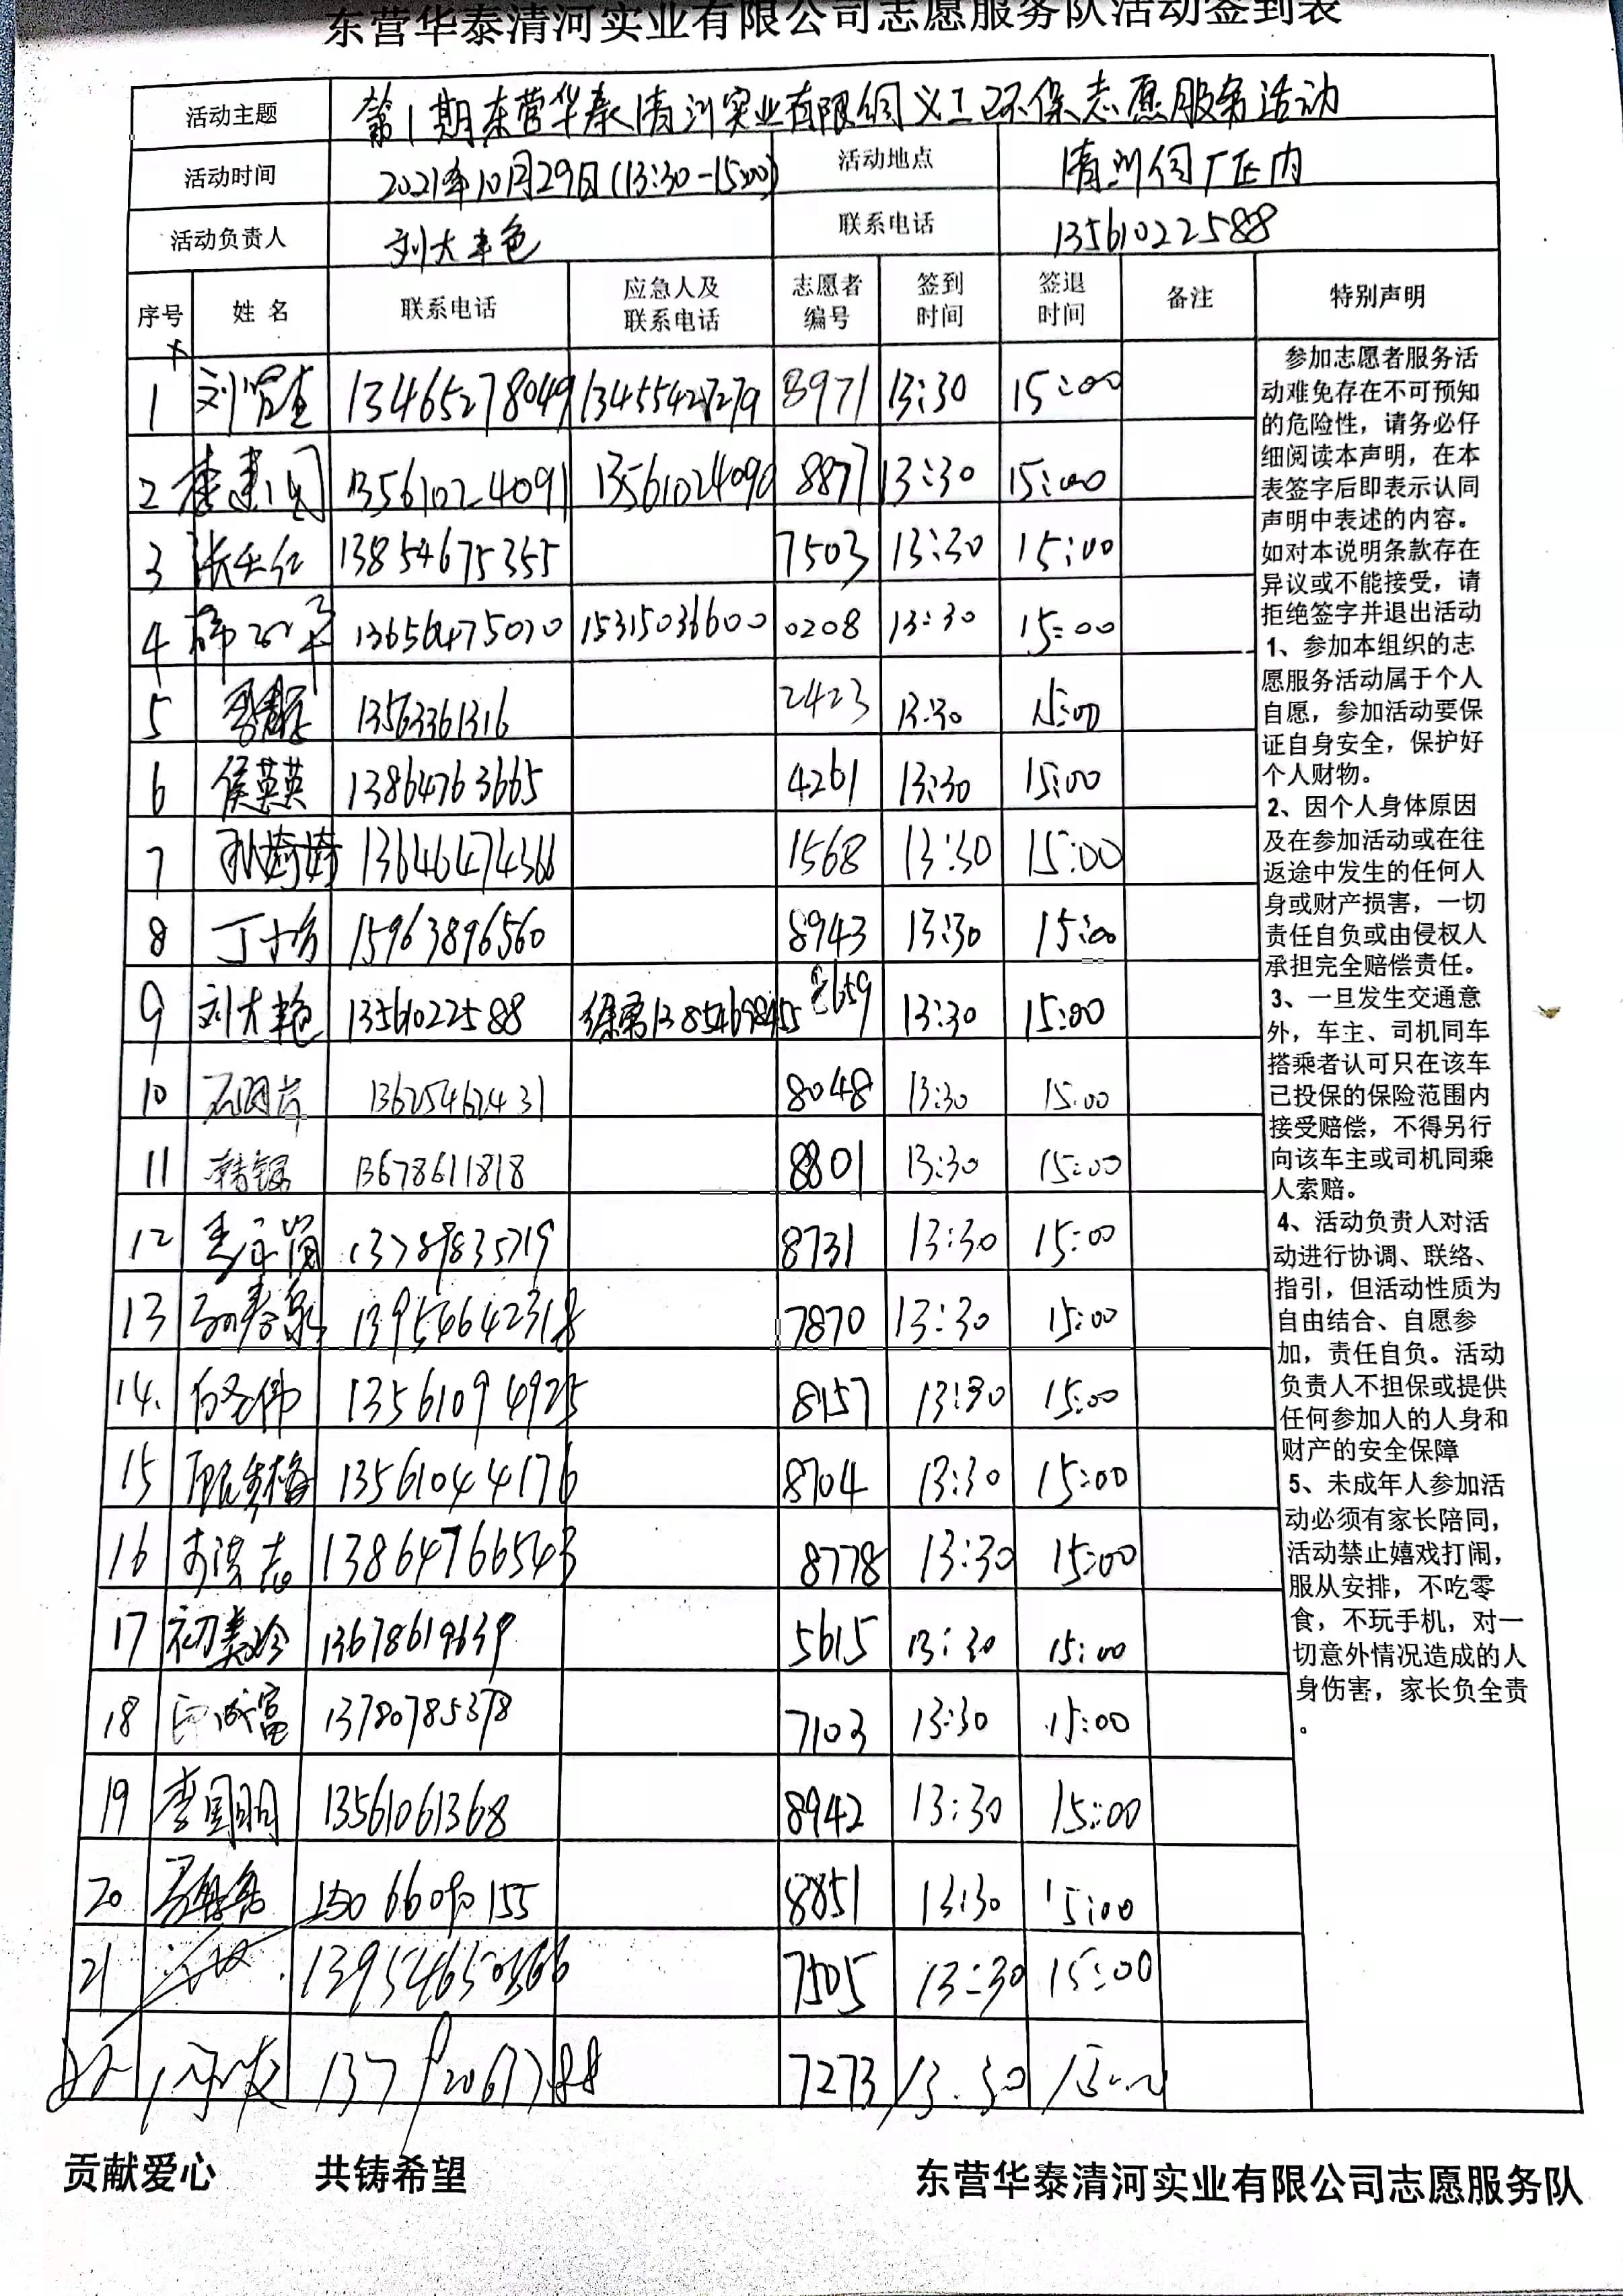 东营华泰清河实业有限公司志愿服务队活动签到表
活动主题 第1期东营华泰清河实业有限公司义工环保志愿服务活动
活动时间 2021年10月29日(13:30-15:00) 活动地点 清河公司厂区内
活动负责人 刘大艳 联系电话 13561022588
序号 姓名 联系电话 应急人及联系电话 志愿者编号 签到时间 签退时间 备注 特别声明
1 13465278049 8971 13:30 15:00
2 13561024091 13561024090 8877 13:30 15:00
3 13854675355 7503 13:30 15:00
4 13656475070 15315036600 0208 13:30 15:00
5 13563361316 2423 13:30 15:00
6 侯英英 13864763665 4261 13:30 15:00
7 孙婷婷 13646474366 1568 13:30 15:00
8 15963896560 8943 13:30 15:00
9 刘大艳 13561022588 8659 13:30 15:00
10 13625462431 8048 13:30 15:00
11 13678611818 8801 13:30 15:00
12 13789835719 8731 13:30 15:00
13 13954642318 7870 13:30 15:00
14. 13561094925 8157 13:30 15:00
15 13561044176 8704 13:30 15:00
16 13864766543 8778 13:30 15:00
17 13678619639 5615 13:30 15:00
18 13780785378 7103 13:30 15:00
19 李国明 13561061368 8942 13:30 15:00
20 15066090155 8851 13:30 15:00
21 7505 13:30 15:00
22 7273 13:30 15:00
参加志愿者服务活
动难免存在不可预知
的危险性，请务必仔
细阅读本声明，在本
表签字后即表示认同
声明中表述的内容。
如对本说明条款存在
异议或不能接受，请
拒绝签字并退出活动
1、参加本组织的志
愿服务活动属于个人
自愿，参加活动要保
证自身安全，保护好
个人财物。
2、因个人身体原因
及在参加活动或在往
返途中发生的任何人
身或财产损害，一切
责任自负或由侵权人
承担完全赔偿责任。
3、一旦发生交通意
外，车主、司机同车
搭乘者认可只在该车
已投保的保险范围内
接受赔偿，不得另行
向该车主或司机同乘
人索赔。
4、活动负责人对活
动进行协调、联络、
指引，但活动性质为
自由结合、自愿参
加，责任自负。活动
负责人不担保或提供
任何参加人的人身和
财产的安全保障
5、未成年人参加活
动必须有家长陪同，
活动禁止嬉戏打闹，
服从安排，不吃零
食，不玩手机，对一
切意外情况造成的人
身伤害，家长负全责
。
贡献爱心 共铸希望 东营华泰清河实业有限公司志愿服务队